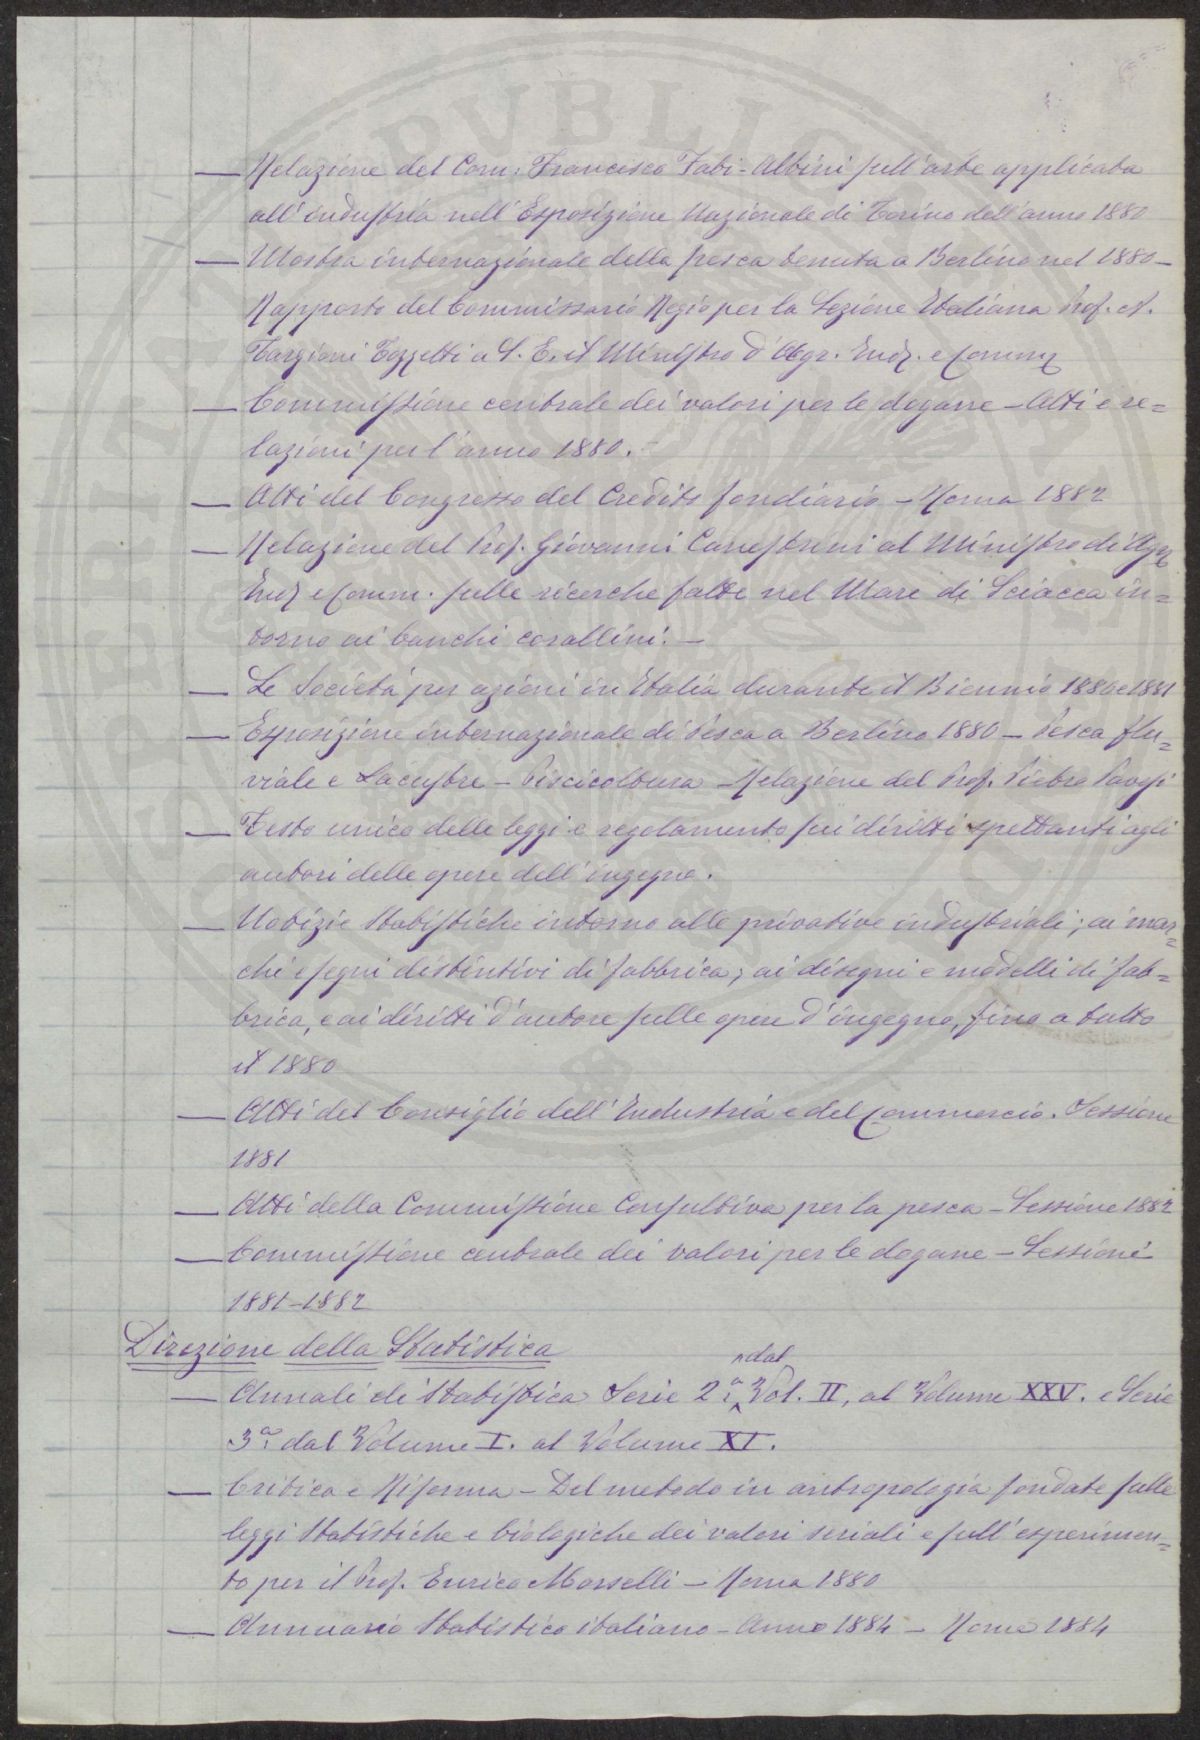 — Relazione del Com: Francesco Fabi-Albini sull'arte applicata
all'industria nell'Esposizione Nazionale di Torino dell'anno 1880
— Mostra internazionale della pesca tenuta a Berlino nel 1880 —
Rapporto del Commissario Regio per la Sezione Italiana Prof. A.
Targioni Tozzetti a S. E. il Ministro d'Agr. Ind. e Comm
— Commissione centrale dei valori per le dogane — Atti e re=
lazioni per l'anno 1880. —
— Atti del Congresso del Credito fondiario — Roma 1882
— Relazione del Prof. Giovanni Canestrini al Ministro di Agr
Ind e Comm. sulle ricerche fatte nel Mare di Sciacca in=
torno ai banchi corallini. —
— Le Società per azioni in Italia durante il Biennio 1880 e 1881
— Esposizione internazionale di Pesca a Berlino 1880 — Pesca flu=
viale e Lacustre — Piscicoltura — Relazione del Prof. Pietro Pavesi
— Testo unico delle leggi e regolamento sui diritti spettanti agli
autori delle opere dell'ingegno.
— Notizie Statistiche intorno alle privative industriali; ai mar=
chi e segni distintivi di fabbrica; ai disegni e modelli di fab=
brica, e ai diritti d'autore sulle opere d'ingegno, fino a tutto
il 1880
— Atti del Consiglio dell'Industria e del Commercio. Sessione
1881
— Atti della Commissione Consultiva per la pesca — Sessione 1882
— Commissione centrale dei valori per le dogane — Sessioni
1881-1882
Direzione della Statistica
dal
— Annali di Statistica Serie 2ª Vol. II, al Volume XXV. e Serie
3ª dal Volume I. al Volume XI.
— Critica e Riforma — Del metodo in antropologia fondate sulle
leggi Statistiche e biologiche dei valori seriali e sull'esperimen=
to per il Prof. Enrico Morselli — Roma 1880
— Annuario Statistico italiano — Anno 1884 — Roma 1884